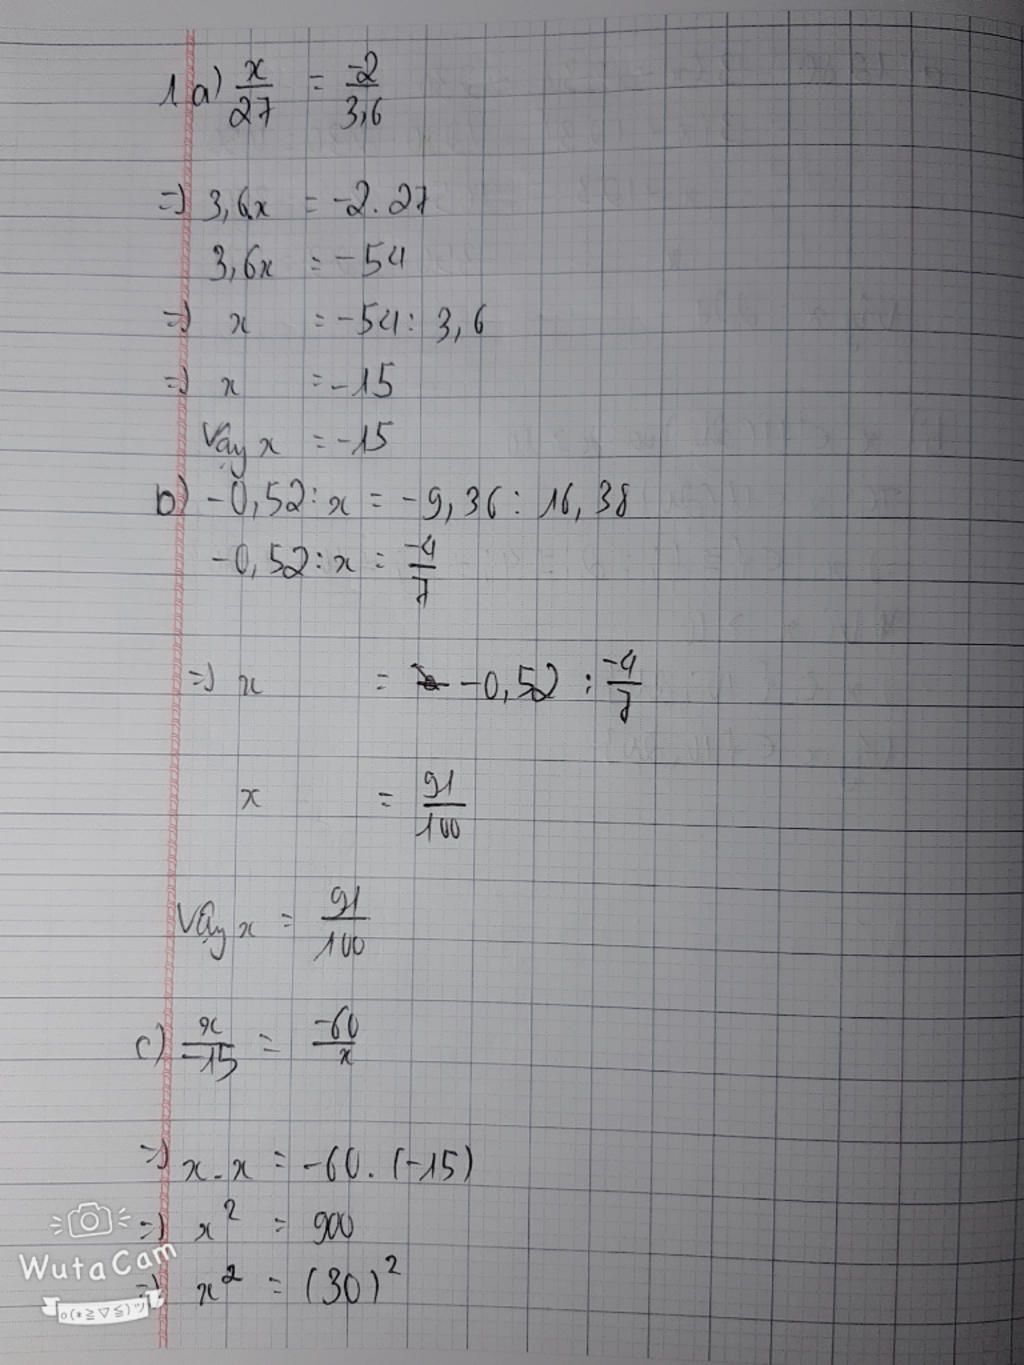 1, a) x/27 = -2/3,6
=> 3,6x = -2.27
3,6x = -54
=> x = -54 : 3,6
=> x = -15
Vậy x = -15
b) -0,52 : x = -9,36 : 16,38
-0,52 : x = -4/7
=> x = -0,52 : -4/7
x = 91/100
Vậy x = 91/100
c) x/-15 = -60/x
=> x.x = -60.(-15)
=> x² = 900
=> x² = (30)²
WutaCam
o(*≧▽≦)ツ